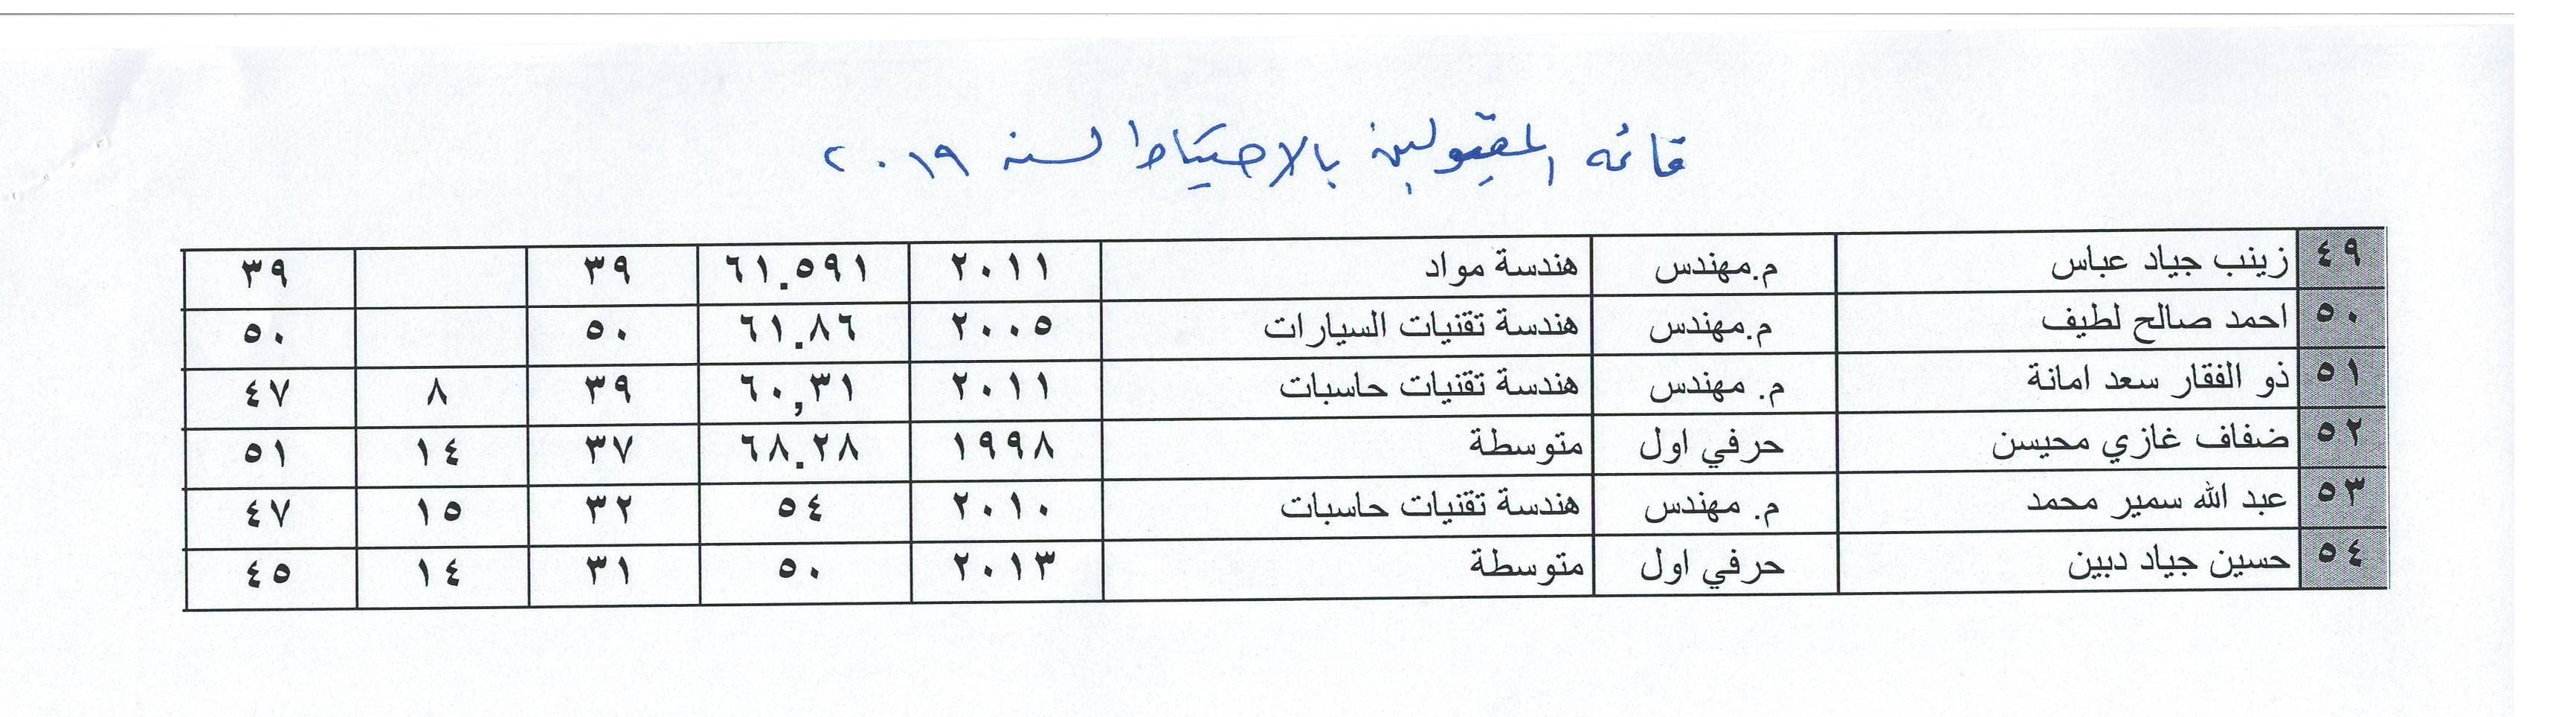 قائمه المقبولين بالاحتياط لسنه ٢٠١٩
٤٩ زينب جياد عباس م.مهندس هندسة مواد ٢٠١١ ٦١.٥٩١ ٣٩ ٣٩
٥٠ احمد صالح لطيف م.مهندس هندسة تقنيات السيارات ٢٠٠٥ ٦١.٨٦ ٥٠ ٥٠
٥١ ذو الفقار سعد امانة م. مهندس هندسة تقنيات حاسبات ٢٠١١ ٦٠,٣١ ٣٩ ٨ ٤٧
٥٢ ضفاف غازي محيسن حرفي اول متوسطة ١٩٩٨ ٦٨.٢٨ ٣٧ ١٤ ٥١
٥٣ عبد الله سمير محمد م. مهندس هندسة تقنيات حاسبات ٢٠١٠ ٥٤ ٣٢ ١٥ ٤٧
٥٤ حسين جياد دبين حرفي اول متوسطة ٢٠١٣ ٥٠ ٣١ ١٤ ٤٥